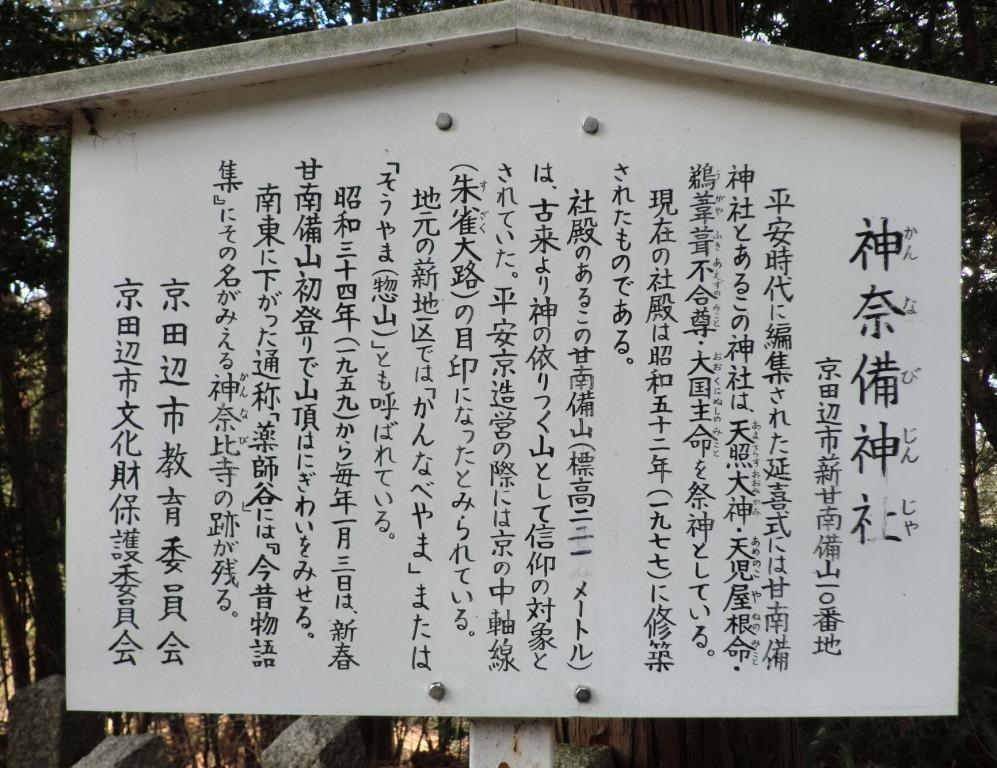 かんなびじんじゃ
神奈備神社
京田辺市新甘南備山一〇番地
平安時代に編集された延喜式には甘南備
神社とあるこの神社は、天照大神・天児屋根命・
あまてらすおおみかみ あめのこやねのみこと
鵜葺葺不合尊・大国主命を祭神としている。
うがやふきあえずのみこと おおくにぬしのみこと
現在の社殿は昭和五十二年(一九七七)に修築
されたものである。
社殿のあるこの甘南備山(標高二二一 メートル)
は、古来より神の依りつく山として信仰の対象と
されていた。平安京造営の際には京の中軸線
(朱雀大路)の目印になったとみられている。
すざく
地元の薪地区では「かんなべやま」または
「そうやま(惣山)」とも呼ばれている。
昭和三十四年(一九五九)から毎年一月三日は、新春
甘南備山初登りで山頂はにぎわいをみせる。
南東に下がった通称「薬師谷」には『今昔物語
集』にその名がみえる神奈比寺の跡が残る。
かんなび
京田辺市教育委員会
京田辺市文化財保護委員会